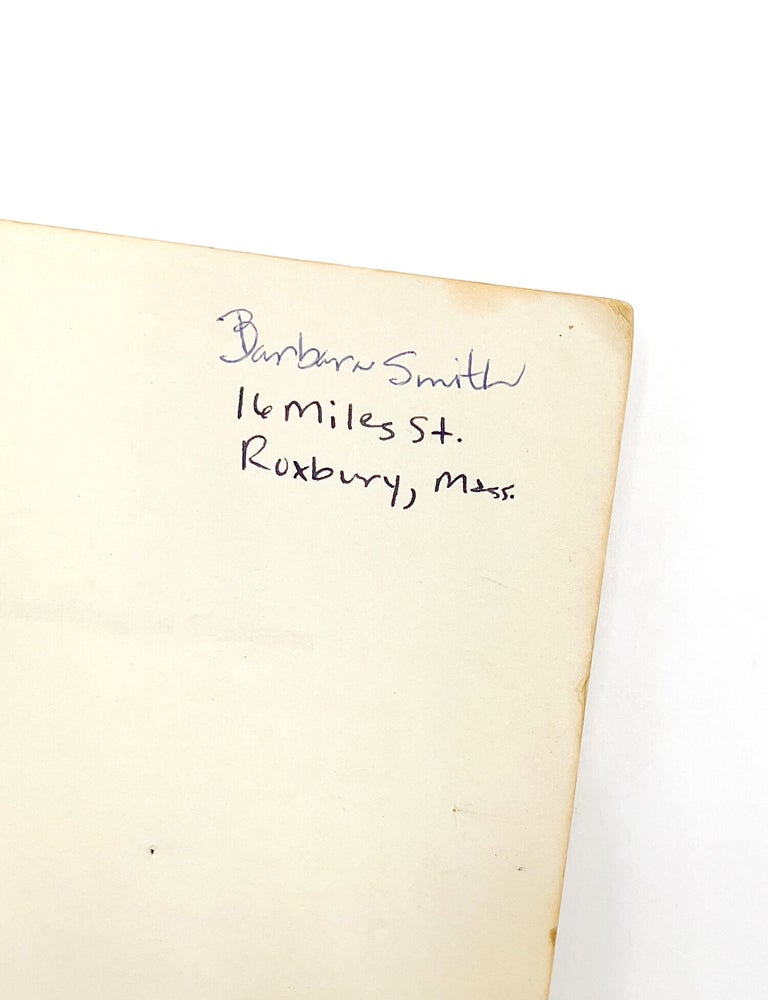 Barbara Smith
16 Miles St.
Roxbury, Mass.